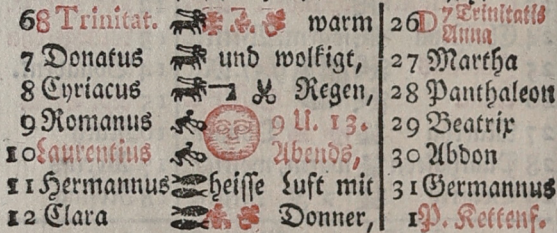 6 8 Trinitat. warm 26 D 7 Trinitatis Anna
7 Donatus und wolkigt, 27 Martha
8 Cyriacus Regen, 28 Panthaleon
9 Romanus 9 U. 13. 29 Beatrix
10 Laurentius Abends, 30 Abdon
11 Hermannus heisse Luft mit 31 Germannus
12 Clara Donner, 1 P. Kettenf.